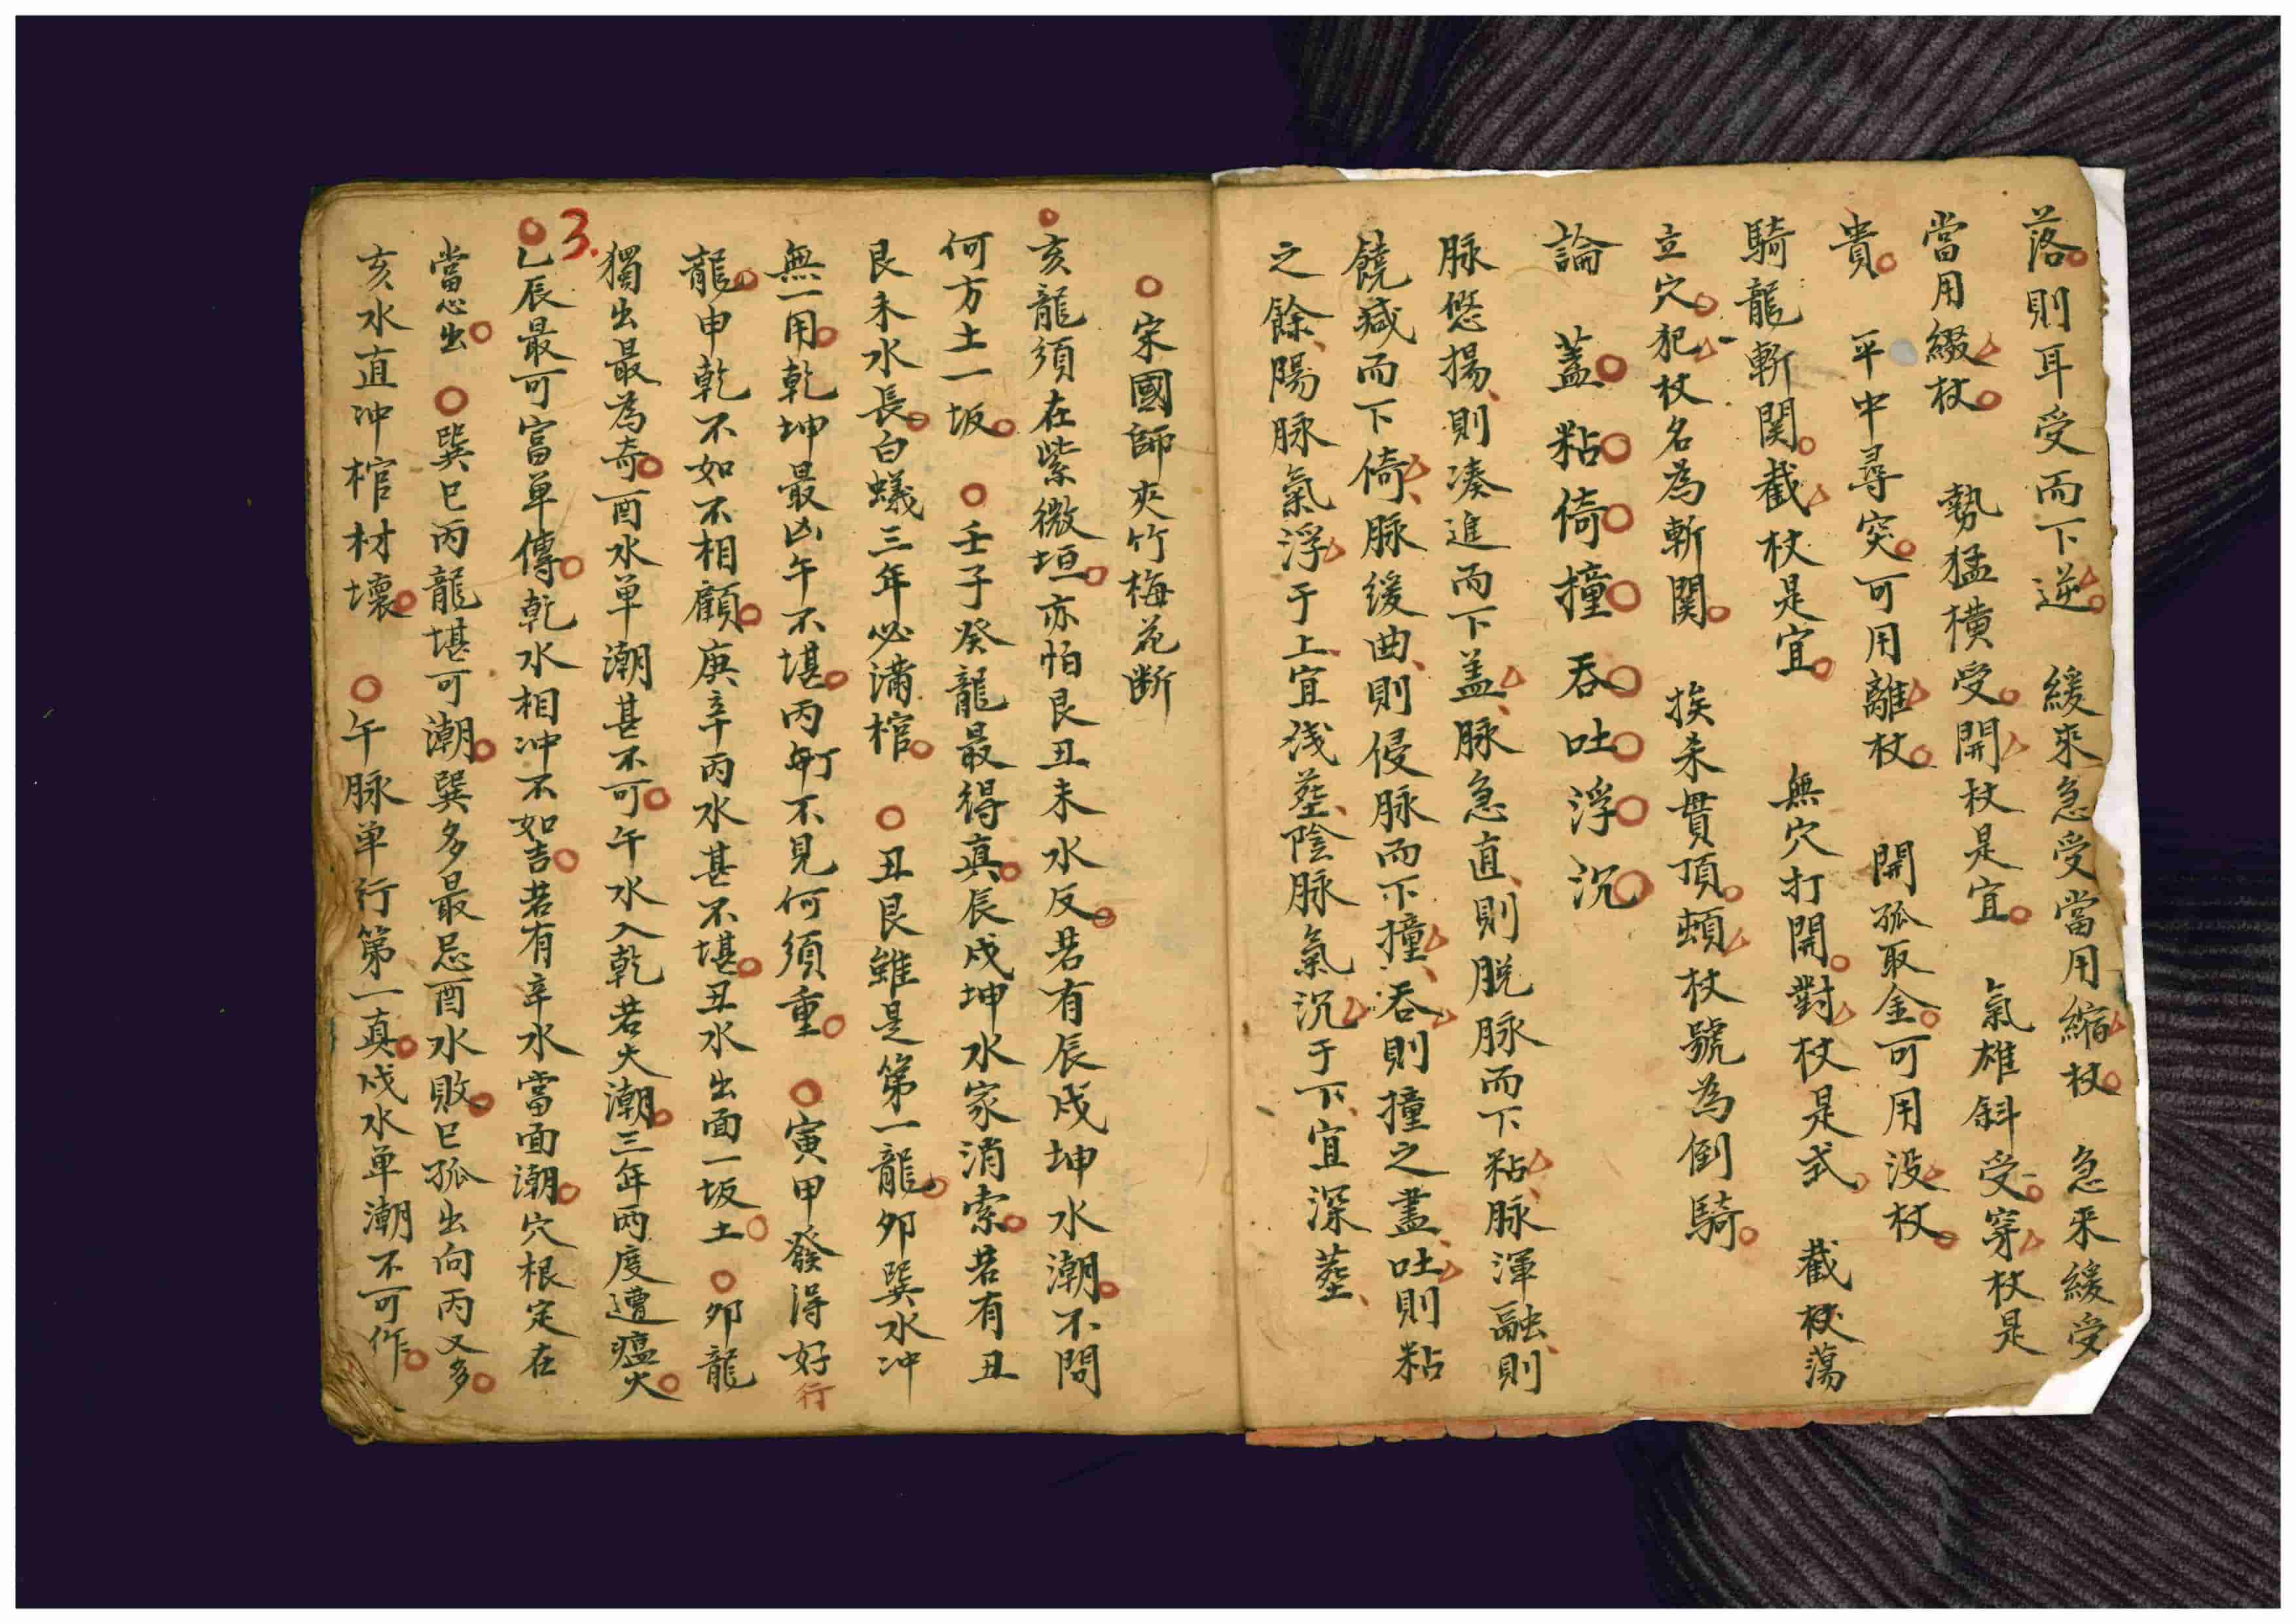 落則耳受而下逆 緩來急受當用縮杖 急來緩受
當用綴杖 勢猛横受開杖是宜 氣雄斜受穿杖是
貴 平中尋突可用離杖 開孤取金可用没杖
騎龍斬関截杖是宜 無穴打開對杖是式 截杖蕩
立穴犯杖名為斬関 挨未貫頂頓杖號為倒騎
論 蓋粘倚撞吞吐浮沉
脉悠揚則凑進而下盖脉急直則脱脉而下粘脉渾融則
饒减而下倚脉緩曲則侵脉而下撞吞則撞之盡吐則粘
之餘陽脉氣浮于上宜浅塟陰脉氣沉于下宜深塟
宋國師夾竹梅花断
亥龍須在紫微垣亦怕艮丑未水反若有辰戍坤水潮不問
何方土一坂 壬子癸龍最得真辰戍坤水家消索若有丑
艮未水長白蟻三年必滿棺 丑艮雖是第一龍夘巽水冲
無一用乾坤最凶午不堪丙町不見何須重 寅甲發得好行
龍申乾不如不相顧庚辛丙水甚不堪丑水出面一坂土 夘龍
獨出最為奇酉水单潮甚不可午水入乾若大潮三年两度遭瘟火
3.
乙辰最可富单傳乾水相冲不如吉若有辛水當面潮穴根定在
當心出 巽巳丙龍堪可潮巽多最忌酉水敗巳孤出向丙又多
亥水直冲棺材壞 午脉单行第一真戍水单潮不可作